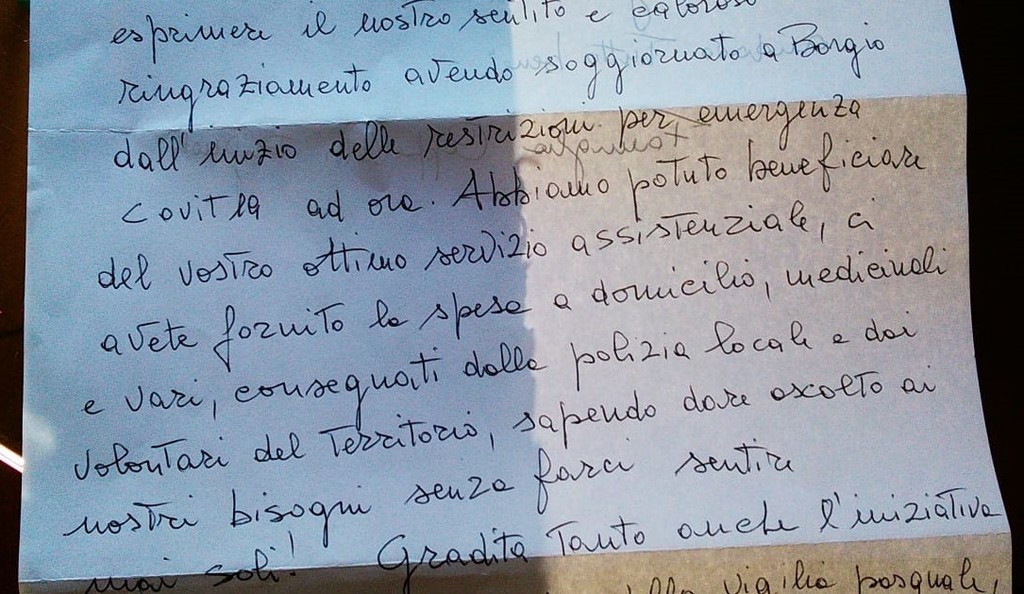 esprimere il nostro sentito e caloroso
ringraziamento avendo soggiornato a Borgio
dall'inizio delle restrizioni per emergenza
covit 19 ad ora. Abbiamo potuto beneficiare
del vostro ottimo servizio assistenziale, ci
avete fornito la spesa a domicilio, medicinali
e vari, consegnati dalla polizia locale e dai
volontari del territorio, sapendo dare ascolto ai
nostri bisogni senza farci sentire
mai soli! Gradita tanto anche l'iniziativa
vigilia pasquale,